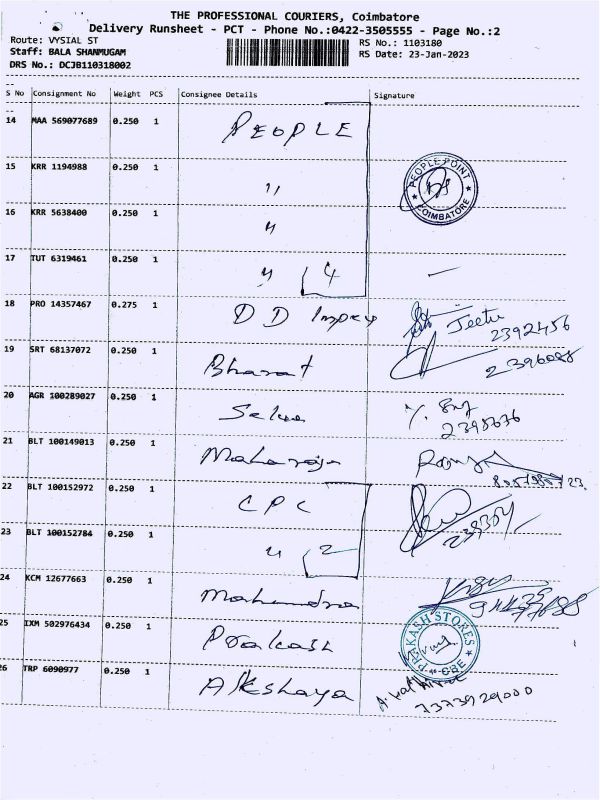 THE PROFESSIONAL COURIERS, Coimbatore
Delivery Runsheet - PCT - Phone No.:0422-3505555 - Page No.:2
Route: VYSIAL ST
RS No.: 1103180
Staff: BALA SHANMUGAM
RS Date: 23-Jan-2023
DRS No.: DCJB110318002
S No Consignment No Weight PCS Consignee Details Signature
14 MAA 569077689 0.250 1 PEOPLE
15 KRR 1194988 0.250 1 "
PEOPLE POINT
COIMBATORE
16 KRR 5638400 0.250 1 "
17 TUT 6319461 0.250 1 " 4
18 PRO 14357467 0.275 1 D D Impex Jeetu
2392456
19 SRT 68137072 0.250 1 Bharat
20 AGR 100289027 0.250 1 Selva
21 BLT 100149013 0.250 1 Maharaja
22 BLT 100152972 0.250 1 C P C
23 BLT 100152784 0.250 1 " 2
24 KCM 12677663 0.250 1 Mahendra
25 IXM 502976434 0.250 1 Prakash
PRAKASH STORES
CBE
26 TRP 6090977 0.250 1 Akshaya
7373929000